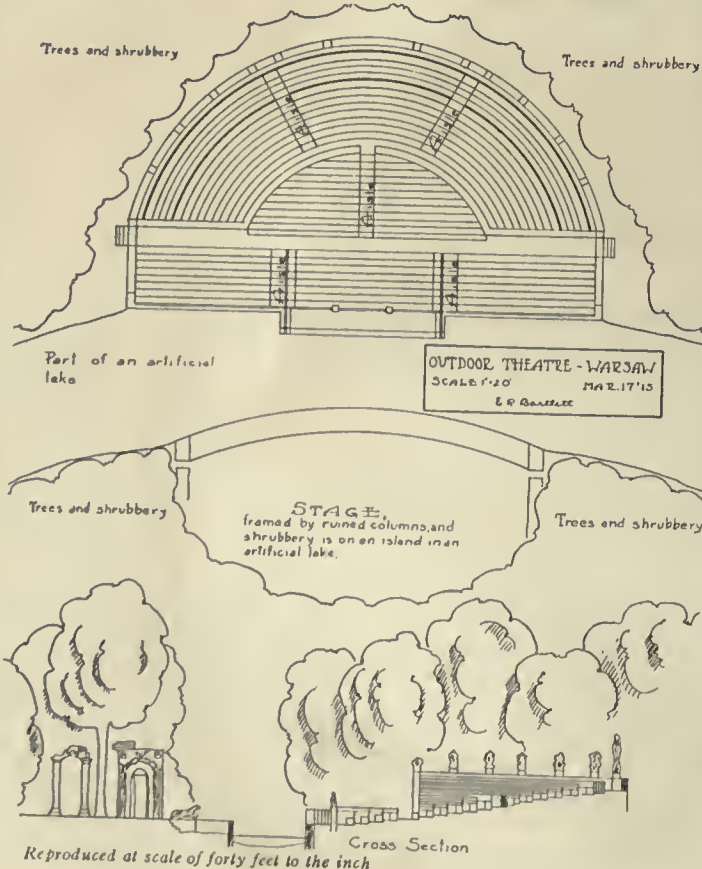 Trees and shrubbery
Trees and shrubbery
Aisle
Aisle
Aisle
Aisle
Aisle
Part of an artificial
lake
OUTDOOR THEATRE - WARSAW
SCALE 1"·20'
MAR. 17 '15
E R Bartlett
Trees and shrubbery
STAGE,
framed by ruined columns, and
shrubbery is on an island in an
artificial lake.
Trees and shrubbery
Cross Section
Reproduced at scale of forty feet to the inch